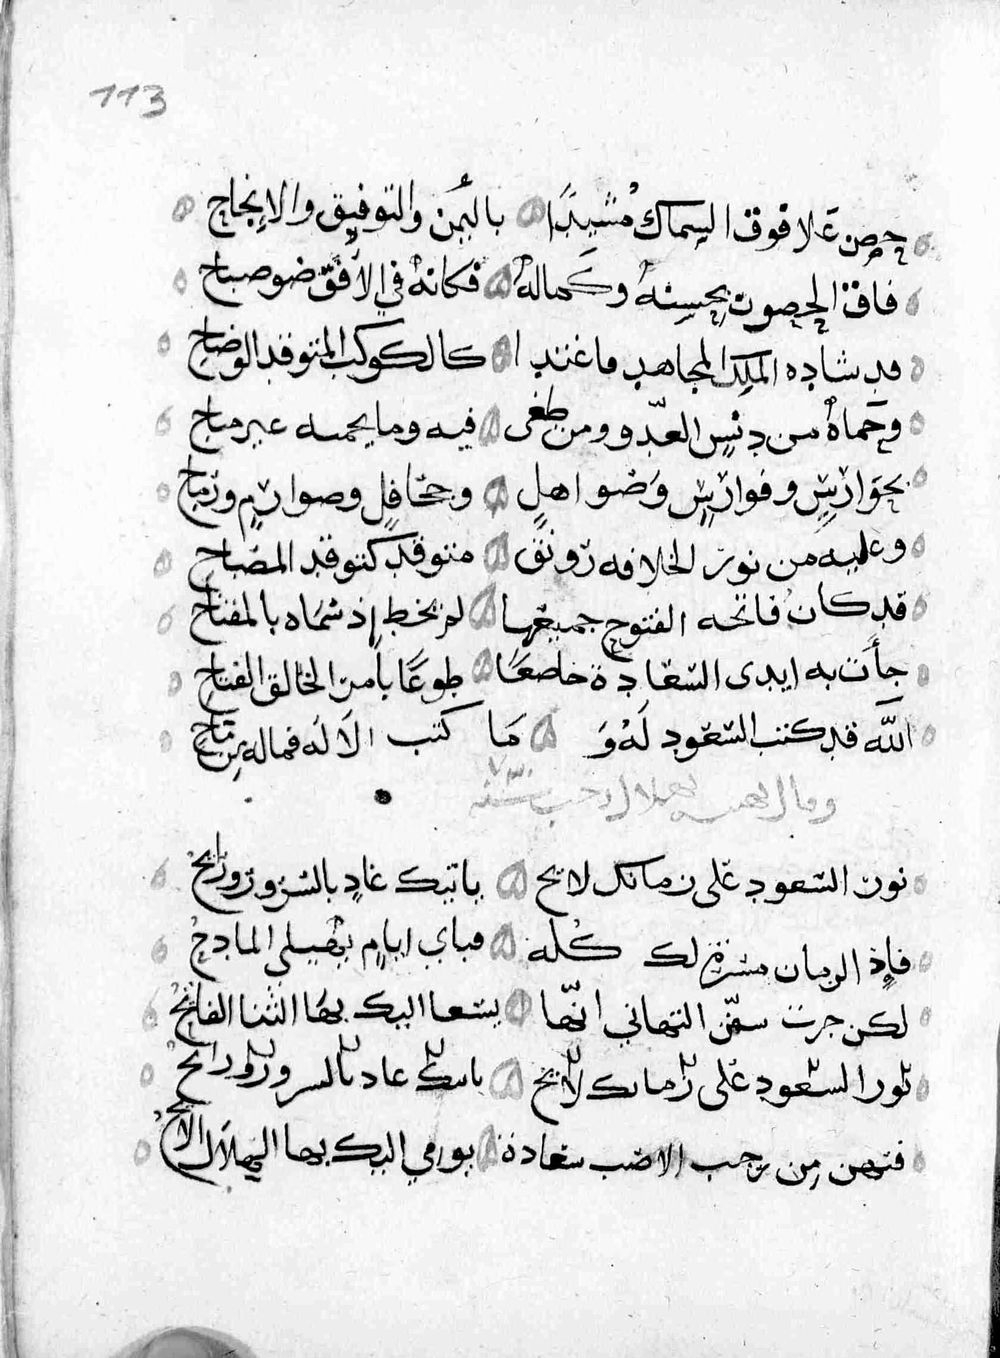 113
حصن علا فوق السماك مُشيدًا باليُمن والتوفيق والانجاح
فاق الحصون بحسنه وكماله فكانهُ في الأفق ضو صباح
قد شاده الملك المجاهد فاغتدا كالكوكب المتوقد الوضاح
وحماهُ من دنس العدّو ومن طغى فيه وما يحميه غير مباح
بحوارسٍ وفوارسٍ وصواهلٍ وجحافلٍ وصوارمٍ ورماح
وعليه من نور الخلافه رونق متوقد كتوقد المصباح
قد كان فاتحه الفتوح جميعها لم يخط إذ سماه بالمفتاح
جأت به ايدى السعادة خاضعا طوعًا بأمر الخالق الفتاح
الله قد كتب السعود لهُ وَ مَا كتب الالَه فماله من ماح
وقال يهنيه بهلال رجب سنة ٧٣٠
نور السعود على زمانك لايح ياتيك غادٍ بالسرور ورايحُ
فإذ الزمان مسرة لك كله فباي ايامٍ يهني المادحُ
لكن جرت سنن التهاني انّها يسعا اليك بها الثنا الفايحُ
نور السعود على زمانك لايح ياتيك غاد بالسرور ورايحُ
فتهن من رجب الاصب سعادة يومي اليك بها الهلال اللايحُ